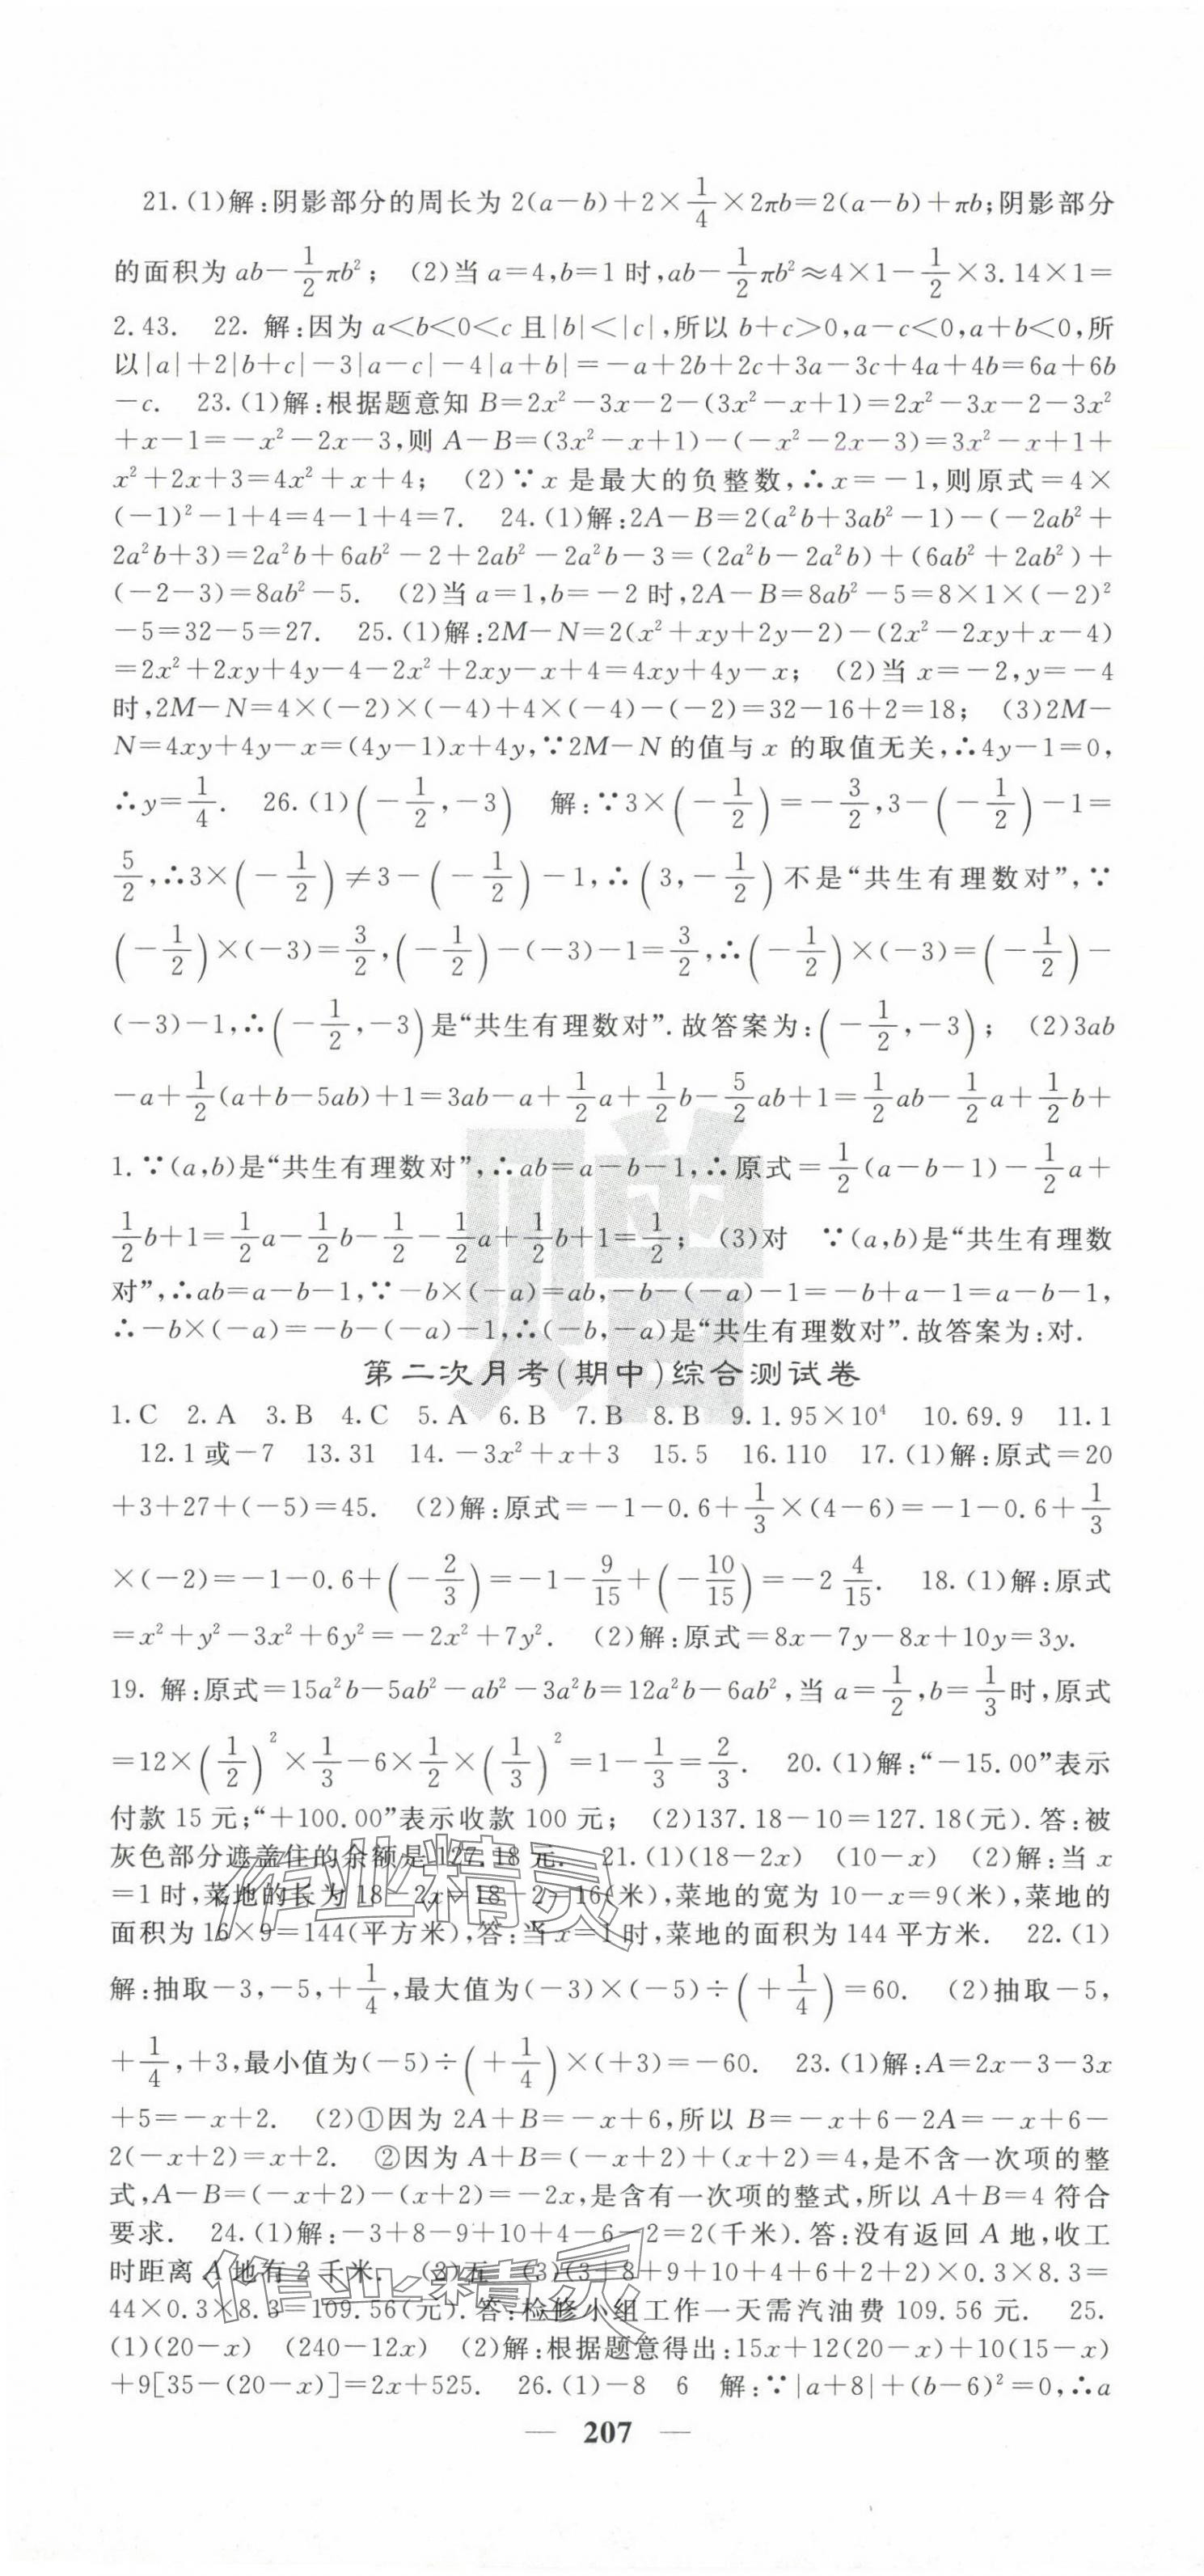 21.(1)解:阴影部分的周长为 2(a-b)+2×1/4×2πb=2(a-b)+πb;阴影部分
的面积为 ab-1/2πb²; (2)当 a=4,b=1 时,ab-1/2πb²≈4×1-1/2×3.14×1=
2.43. 22. 解:因为 a<b<0<c 且|b|<|c|,所以 b+c>0,a-c<0,a+b<0,所
以|a|+2|b+c|-3|a-c|-4|a+b|=-a+2b+2c+3a-3c+4a+4b=6a+6b
-c. 23.(1)解:根据题意知 B=2x²-3x-2-(3x²-x+1)=2x²-3x-2-3x²
+x-1=-x²-2x-3,则 A-B=(3x²-x+1)-(-x²-2x-3)=3x²-x+1+
x²+2x+3=4x²+x+4; (2)∵x 是最大的负整数,∴x=-1,则原式=4×
(-1)²-1+4=4-1+4=7. 24.(1)解:2A-B=2(a²b+3ab²-1)-(-2ab²+
2a²b+3)=2a²b+6ab²-2+2ab²-2a²b-3=(2a²b-2a²b)+(6ab²+2ab²)+
(-2-3)=8ab²-5. (2)当 a=1,b=-2 时,2A-B=8ab²-5=8×1×(-2)²
-5=32-5=27. 25.(1)解:2M-N=2(x²+xy+2y-2)-(2x²-2xy+x-4)
=2x²+2xy+4y-4-2x²+2xy-x+4=4xy+4y-x; (2)当 x=-2,y=-4
时,2M-N=4×(-2)×(-4)+4×(-4)-(-2)=32-16+2=18; (3)2M-
N=4xy+4y-x=(4y-1)x+4y,∵2M-N 的值与 x 的取值无关,∴4y-1=0,
∴y=1/4. 26.(1)(-1/2,-3) 解:∵3×(-1/2)=-3/2,3-(-1/2)-1=
5/2,∴3×(-1/2)≠3-(-1/2)-1,∴(3,-1/2)不是“共生有理数对”,∵
(-1/2)×(-3)=3/2,(-1/2)-(-3)-1=3/2,∴(-1/2)×(-3)=(-1/2)-
(-3)-1,∴(-1/2,-3)是“共生有理数对”.故答案为:(-1/2,-3); (2)3ab
-a+1/2(a+b-5ab)+1=3ab-a+1/2a+1/2b-5/2ab+1=1/2ab-1/2a+1/2b+
1.∵(a,b)是“共生有理数对”,∴ab=a-b-1,∴原式=1/2(a-b-1)-1/2a+
1/2b+1=1/2a-1/2b-1/2-1/2a+1/2b+1=1/2; (3)对 ∵(a,b)是“共生有理数
对”,∴ab=a-b-1,∵-b×(-a)=ab,-b-(-a)-1=-b+a-1=a-b-1,
∴-b×(-a)=-b-(-a)-1,∴(-b,-a)是“共生有理数对”.故答案为:对.
赠
第二次月考(期中)综合测试卷
1.C 2.A 3.B 4.C 5.A 6.B 7.B 8.B 9.1.95×10⁴ 10.69.9 11.1
12.1 或-7 13.31 14.-3x²+x+3 15.5 16.110 17.(1)解:原式=20
+3+27+(-5)=45. (2)解:原式=-1-0.6+1/3×(4-6)=-1-0.6+1/3
×(-2)=-1-0.6+(-2/3)=-1-9/15+(-10/15)=-2 4/15. 18.(1)解:原式
=x²+y²-3x²+6y²=-2x²+7y². (2)解:原式=8x-7y-8x+10y=3y.
19. 解:原式=15a²b-5ab²-ab²-3a²b=12a²b-6ab²,当 a=1/2,b=1/3时,原式
=12×(1/2)²×1/3-6×1/2×(1/3)²=1-1/3=2/3. 20.(1)解:“-15.00”表示
付款 15 元;“+100.00”表示收款 100 元; (2)137.18-10=127.18(元).答:被
灰色部分遮盖住的余额是 127.18 元. 21.(1)(18-2x) (10-x) (2)解:当 x
=1 时,菜地的长为 18-2x=18-2=16(米),菜地的宽为 10-x=9(米),菜地的
面积为 16×9=144(平方米),答:当 x=1 时,菜地的面积为 144 平方米. 22.(1)
作业精灵
解:抽取-3,-5,+1/4,最大值为(-3)×(-5)÷(+1/4)=60. (2)抽取-5,
+1/4,+3,最小值为(-5)÷(+1/4)×(+3)=-60. 23.(1)解:A=2x-3-3x
+5=-x+2. (2)①因为 2A+B=-x+6,所以 B=-x+6-2A=-x+6-
2(-x+2)=x+2. ②因为 A+B=(-x+2)+(x+2)=4,是不含一次项的整
式,A-B=(-x+2)-(x+2)=-2x,是含有一次项的整式,所以 A+B=4 符合
要求. 24.(1)解:-3+8-9+10+4-6-2=2(千米).答:没有返回 A 地,收工
时距离 A 地有 2 千米. (2)五 (3)(3+8+9+10+4+6+2+2)×0.3×8.3=
44×0.3×8.3=109.56(元).答:检修小组工作一天需汽油费 109.56 元. 25.
作业精灵
(1)(20-x) (240-12x) (2)解:根据题意得出:15x+12(20-x)+10(15-x)
+9[35-(20-x)]=2x+525. 26.(1)-8 6 解:∵|a+8|+(b-6)²=0,∴a
— 207 —